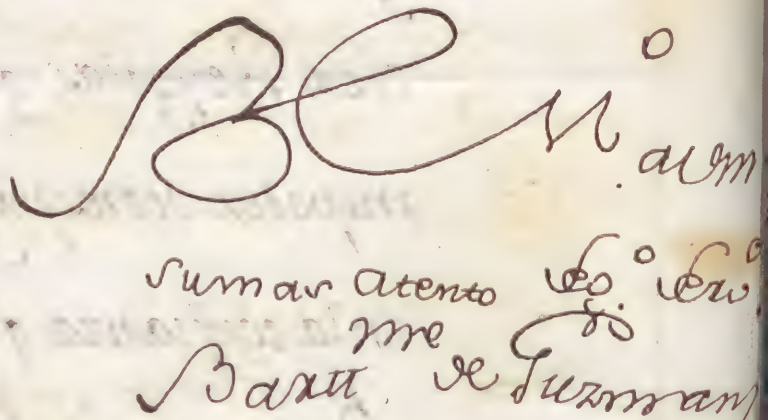 B L M. a Um
su mas atento seg.º serv.º
Bartt.me de Guzman